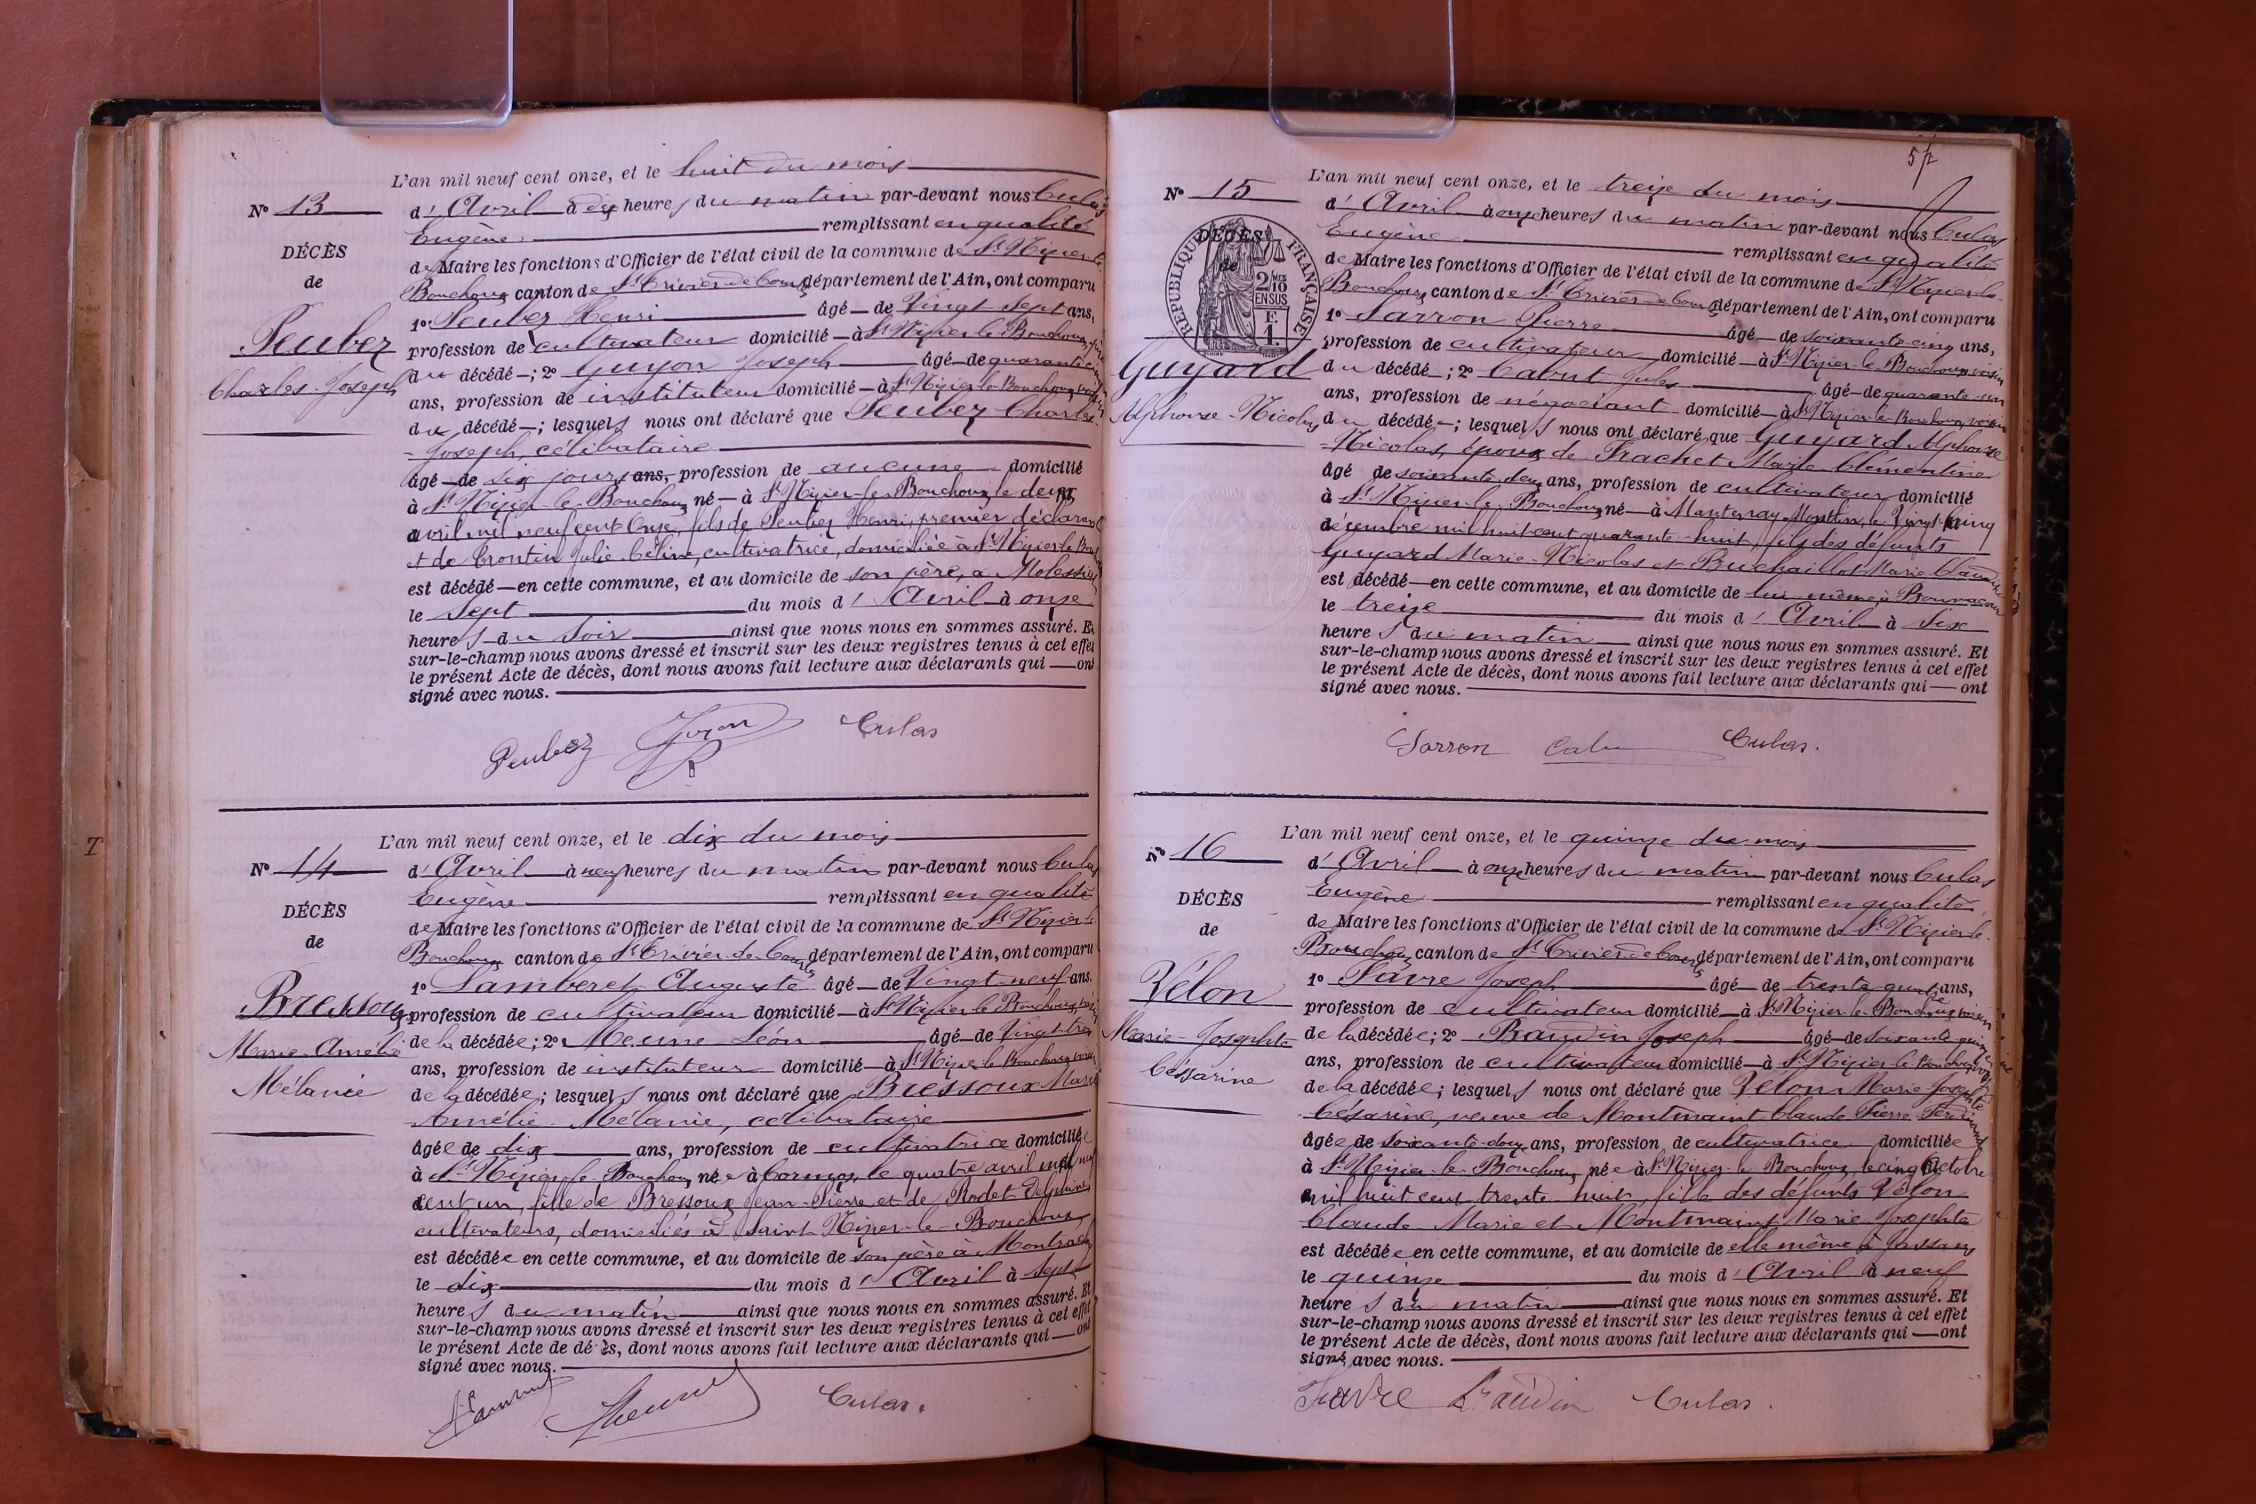 L'an mil neuf cent onze, et le huit du mois
N° 13
d'Avril à dix heures du matin par-devant nous Culas
Eugène remplissant en qualité
DÉCÈS
de Maire les fonctions d'Officier de l'état civil de la commune de St Nizier le
de
Bouchoux canton de St Trivier de Courtes département de l'Ain, ont comparu
1° Peubez Henri âgé de Vingt Sept ans,
Peubez
profession de cultivateur domicilié à St Nizier le Bouchoux, père
Charles Joseph
du décédé ; 2° Guyon Joseph âgé de quarante
ans, profession de instituteur domicilié à St Nizier le Bouchoux, voisin
du décédé ; lesquels nous ont déclaré que Peubez Charles
Joseph, célibataire
âgé de six jours ans, profession de aucune domicilié
à St Nizier le Bouchoux né à St Nizier le Bouchoux le deux
avril mil neuf cent onze, fils de Peubez Henri, premier déclarant
et de Crontin Julie Céline, cultivatrice, domiciliée à St Nizier le
est décédé en cette commune, et au domicile de son père, a
le Sept du mois d'Avril à onze
heures du Soir ainsi que nous nous en sommes assuré. Et
sur-le-champ nous avons dressé et inscrit sur les deux registres tenus à cet effet
le présent Acte de décès, dont nous avons fait lecture aux déclarants qui ont
signé avec nous.
Peubez Guyon Culas
L'an mil neuf cent onze, et le dix du mois
N° 14
d'Avril à neuf heures du matin par-devant nous Culas
Eugène remplissant en qualité
DÉCÈS
de Maire les fonctions d'Officier de l'état civil de la commune de St Nizier le
de
Bouchoux canton de St Trivier de Courtes département de l'Ain, ont comparu
1° Lamberet Auguste âgé de Vingt neuf ans.
Bressoux
profession de cultivateur domicilié à St Nizier le Bouchoux, voisin
Marie Amélie
de la décédée ; 2° Meune Léon âgé de Vingt trois
ans, profession de instituteur domicilié à St Nizier le Bouchoux, voisin
Mélanie
de la décédée ; lesquels nous ont déclaré que Bressoux Marie
Amélie Mélanie, célibataire
âgée de dix ans, profession de cultivatrice domiciliée
à St Nizier le Bouchoux née à Cormoz, le quatre avril mil neuf
cent un, fille de Bressoux Jean Pierre et de Rodet Delphine
cultivateurs, domiciliés à Saint Nizier le Bouchoux
est décédée en cette commune, et au domicile de son père à
le dix du mois d'Avril à sept
heures du matin ainsi que nous nous en sommes assuré. Et
sur-le-champ nous avons dressé et inscrit sur les deux registres tenus à cet effet
le présent Acte de décès, dont nous avons fait lecture aux déclarants qui ont
signé avec nous.
Meune Culas.
T
57
L'an mil neuf cent onze, et le treize du mois
N° 15
d'Avril à onze heures du matin par-devant nous Culas
Eugène remplissant en qualité
DÉCÈS
de
RÉPUBLIQUE FRANÇAISE
2/10 EN SUS
F. 1.
de Maire les fonctions d'Officier de l'état civil de la commune de St Nizier le
Bouchoux canton de St Trivier de Courtes département de l'Ain, ont comparu
1° Sarron Pierre âgé de soixante cinq ans,
profession de cultivateur domicilié à St Nizier le Bouchoux, voisin
Guyard
du décédé ; 2° Cabut Jules âgé de quarante un
ans, profession de négociant domicilié à St Nizier le Bouchoux, voisin
Alphonse Nicolas
du décédé ; lesquels nous ont déclaré que Guyard Alphonse
Nicolas, époux de Trachet Marie Clémentine
âgé de soixante deux ans, profession de cultivateur domicilié
à St Nizier le Bouchoux né à Mantenay Montlin, le Vingt cinq
décembre mil huit cent quarante huit, fils des défunts
Guyard Marie Nicolas et Buchaillot Marie Claudine
est décédé en cette commune, et au domicile de lui même à
le treize du mois d'Avril à Six
heures du matin ainsi que nous nous en sommes assuré. Et
sur-le-champ nous avons dressé et inscrit sur les deux registres tenus à cet effet
le présent Acte de décès, dont nous avons fait lecture aux déclarants qui ont
signé avec nous.
Sarron Cabu Culas.
L'an mil neuf cent onze, et le quinze du mois
N° 16
d'Avril à onze heures du matin par-devant nous Culas
Eugène remplissant en qualité
DÉCÈS
de Maire les fonctions d'Officier de l'état civil de la commune de St Nizier le
de
Bouchoux canton de St Trivier de Courtes département de l'Ain, ont comparu
1° Favre Joseph âgé de trente quatre ans,
Vélon
profession de cultivateur domicilié à St Nizier le Bouchoux, voisin
Marie Josephte
de la décédée ; 2° Baudin Joseph âgé de soixante quinze
ans, profession de cultivateur domicilié à St Nizier le Bouchoux, voisin
Césarine
de la décédée ; lesquels nous ont déclaré que Vélon Marie Josephte
Césarine, veuve de Montmaint Claude Pierre Ferdinand
âgée de soixante douze ans, profession de cultivatrice domiciliée
à St Nizier le Bouchoux née à St Nizier le Bouchoux, le cinq Octobre
mil huit cent trente huit, fille des défunts Vélon
Claude Marie et Montmaint Marie Josephte
est décédée en cette commune, et au domicile de elle même à
le quinze du mois d'Avril à neuf
heures du matin ainsi que nous nous en sommes assuré. Et
sur-le-champ nous avons dressé et inscrit sur les deux registres tenus à cet effet
le présent Acte de décès, dont nous avons fait lecture aux déclarants qui ont
signé avec nous.
Favre Baudin Culas.